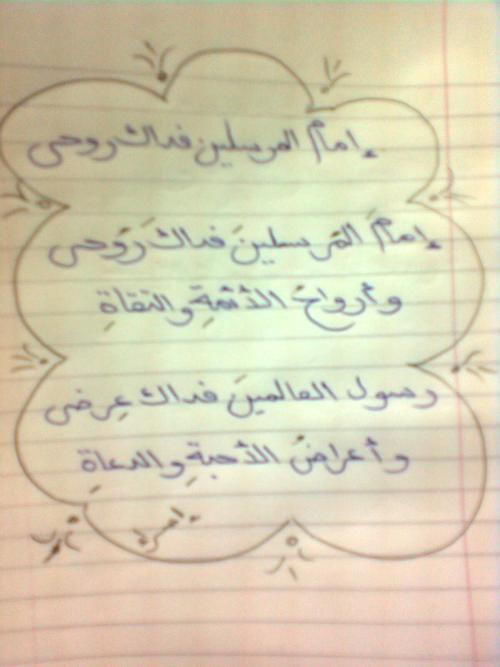 إمام المرسلين فداك روحى
إمامَ المُرسلينَ فداكَ رَوُحى
وأرواحُ الأئمةِ والتقاةِ
رسول العالمينَ فداك عِرضى
وأعراضُ الأحبةِ والدعاةِ